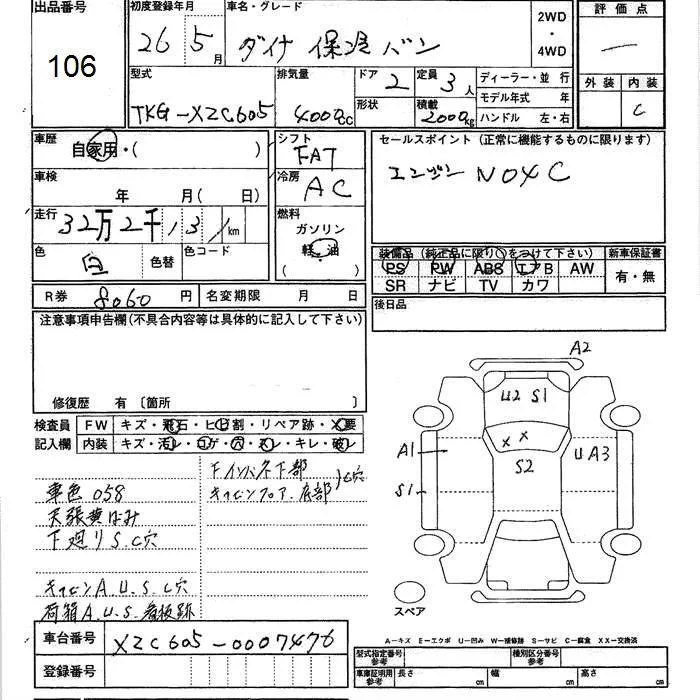 出品番号
106
初度登録年月
26 5月
車名・グレード
ダイナ 保冷 バン
2WD
・
4WD
評価点
外装 内装
C
型式
TKG-XZC605
排気量
4000cc
ドア
2
形状
定員
3人
積載
2000kg
ディーラー・並行
モデル年式 年
ハンドル 左・右
車歴
自家用・( )
車検
年 月(日)
走行
32万2千13 km
色
白
色替
色コード
シフト
FAT
冷房
AC
燃料
ガソリン
軽・油
( )
セールスポイント (正常に機能するものに限ります)
エンジン NOX C
装備品 (純正品に限り○をつけて下さい)
PS PW ABS エアB AW
SR ナビ TV カワ
新車保証書
有・無
R券 8060円 名変期限 月 日
後日品
注意事項申告欄(不具合内容等は具体的に記入して下さい)
修復歴 有 〔箇所
検査員
記入欄
FW キズ・飛石・ヒビ割・リペア跡・X要
内装 キズ・汚レ・コゲ・穴・スレ・キレ・破レ
車色 058
天張黄ばみ
下廻りS.C穴
キャビンA.U.S.C穴
荷箱A.U.S.看板跡
下部
キャビンフロア.底部
C穴
A2
U2 S1
X X
S2
A1
S1
UA3
スペア
A-キズ E-エクボ U-凹み W-補修跡 S-サビ C-腐食 XX-交換済
車台番号 XZC605-0007476
登録番号
型式指定番号
参考
種別区分番号
参考
車庫証明用
参考
長さ cm 幅 cm 高さ cm